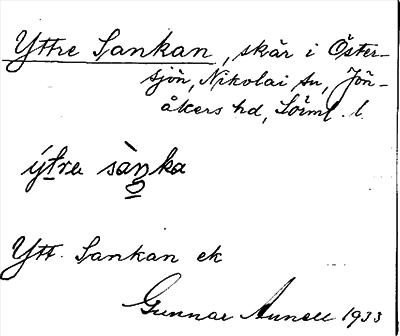 Yttre Sankan, skär i Öster-
sjön, Nikolai sn, Jön-
åkers hd, Sörml. l.
ýtrɐ sàŋka
Ytt. Sankan ek
Gunnar Annell 1933